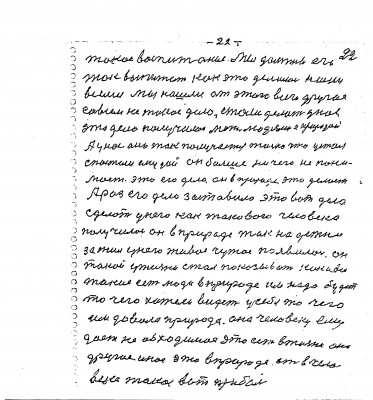 - 22 - 22
такое воспитание. Мы должны его
так воспитат как это делали наши
всеми мы нашли от этого всего другая
совсем не такое дело, стали делать у нас
это дело получилос меж людями и природой
А у нас она так получается только что
спасти ему дай он больше ничего не пони-
мает. это его дело он в природе это делает
А раз его дело заставило это вот дело
сделат у него как такового человека
получилос он в природе так на
за ним у него живое чужое появилос. он
такой у жизни стал показыват каковы
такие ест люди в природе им надо будет
то чего хотелос видет у себя то чего
им довела природа. она человеку ему
дает не обходимая это ест в жизни она
другое иное это в природе. от в чело
века такая вот прибыл